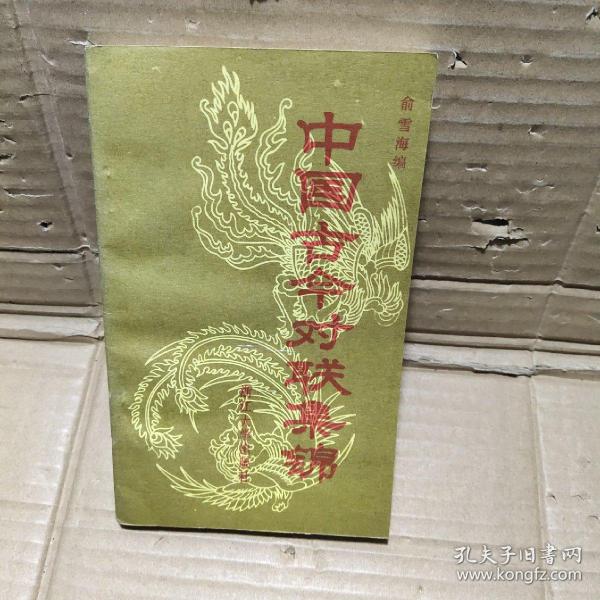 俞雪海编
中国古今对联集锦
浙江大学出版社
孔夫子旧書网
www.kongfz.com